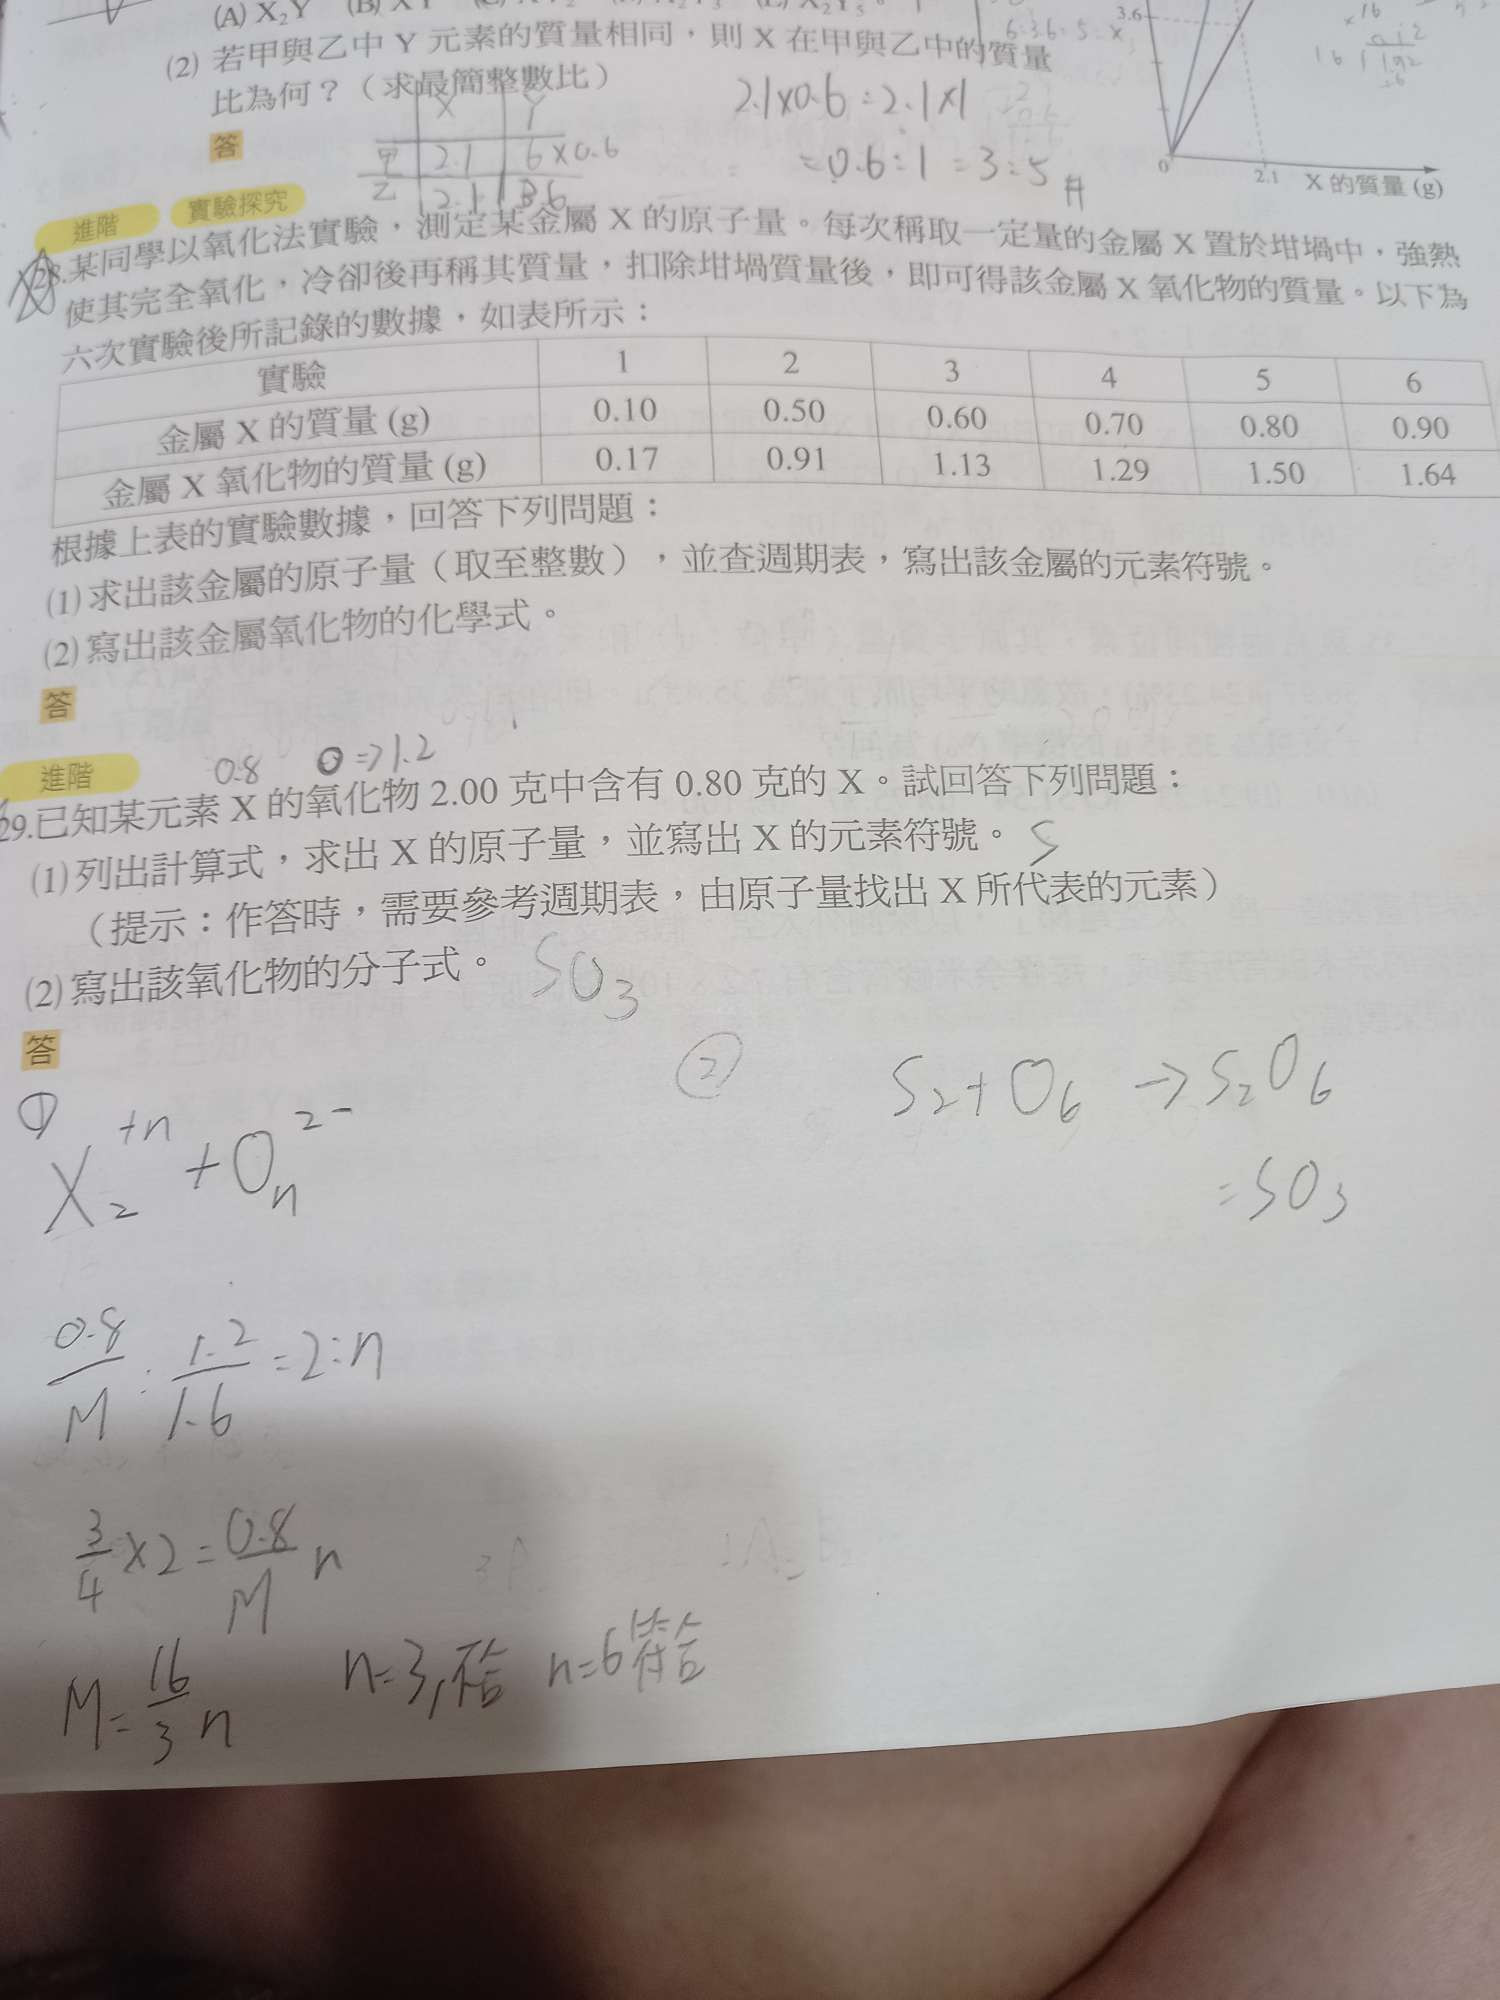 (A) X₂Y
(2) 若甲與乙中 Y 元素的質量相同，則 X 在甲與乙中的質量
比為何？（求最簡整數比）
答
X Y
甲 2.1 6 ×0.6
乙 2.1 3.6
2.1×0.6 : 2.1×1
= 0.6 : 1 = 3 : 5
3.6
0 2.1 X 的質量 (g)
進階 實驗探究
28.某同學以氧化法實驗，測定某金屬 X 的原子量。每次稱取一定量的金屬 X 置於坩堝中，強熱
使其完全氧化，冷卻後再稱其質量，扣除坩堝質量後，即可得該金屬 X 氧化物的質量。以下為
六次實驗後所記錄的數據，如表所示：
實驗 1 2 3 4 5 6
金屬 X 的質量 (g) 0.10 0.50 0.60 0.70 0.80 0.90
金屬 X 氧化物的質量 (g) 0.17 0.91 1.13 1.29 1.50 1.64
根據上表的實驗數據，回答下列問題：
(1) 求出該金屬的原子量（取至整數），並查週期表，寫出該金屬的元素符號。
(2) 寫出該金屬氧化物的化學式。
答
進階
0.8 O⇒1.2
29.已知某元素 X 的氧化物 2.00 克中含有 0.80 克的 X。試回答下列問題：
(1) 列出計算式，求出 X 的原子量，並寫出 X 的元素符號。 S
（提示：作答時，需要參考週期表，由原子量找出 X 所代表的元素）
(2) 寫出該氧化物的分子式。 SO₃
答
① X₂⁺ⁿ + Oₙ²⁻
② S₂ + O₆ → S₂O₆
= SO₃
0.8/M : 1.2/1.6 = 2 : n
3/4 × 2 = 0.8/M n
M = 16/3 n n=3, 不合 n=6 符合